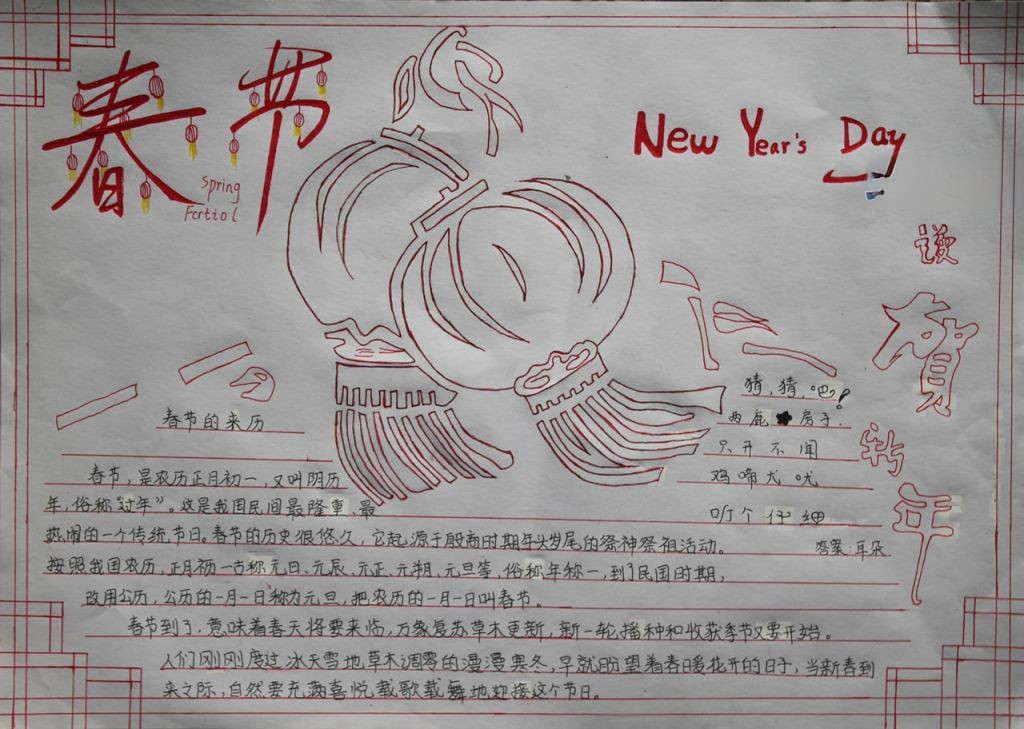 春节
Spring
Fertiol
New Year's Day
谨
贺
新
年
猜,猜,吧!
两扇 房子,
只开不闻
鸡啼犬吠
听个仔细
答案:耳朵
春节的来历
春节,是农历正月初一,又叫阴历
年,俗称“过年”。这是我国民间最隆重、最
热闹的一个传统节日。春节的历史很悠久,它起源于殷商时期年头岁尾的祭神祭祖活动。
按照我国农历,正月初一古称元日、元辰、元正、元朔、元旦等,俗称年称一,到了民国时期,
改用公历,公历的一月一日称为元旦,把农历的一月一日叫春节。
春节到了,意味着春天将要来临,万象复苏草木更新,新一轮播种和收获季节又要开始。
人们刚刚度过冰天雪地草木凋零的漫漫寒冬,早就盼望着春暖花开的日子,当新春到
来之际,自然要充满喜悦载歌载舞地迎接这个节日。